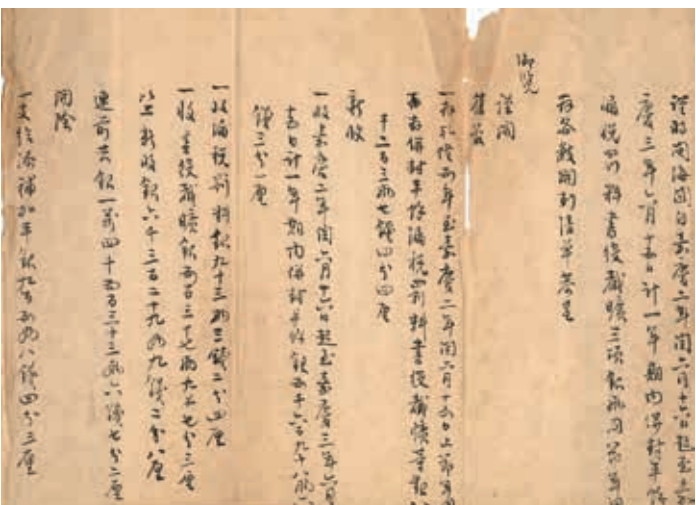 謹將閩海關自嘉慶二年閏六月十六日起至嘉
慶三年六月十五日計一年期內併封平餘
海稅罰料書役截曠三項銀兩同前年
存各數開列清單恭呈
御覽
謹開
舊管
一存乾隆 年至嘉慶二年閏六月十五日止節年
存併封平餘海稅罰料書役截曠等銀
千二百三兩七錢四分四厘
新收
一收嘉慶二年閏六月十六日起至嘉慶三年六月
十五日計一年期內併封平餘銀 千六百九十八兩
錢三分一厘
一收海稅罰料銀九十三兩三錢二分四厘
一收書役截曠銀 百三十七兩九錢七分三厘
以上新收銀六千三百二十九兩九錢二分八厘
連前共銀一萬四千五百三十三兩六錢七分二厘
開除
一支給添補加平銀九百 兩八錢四分三厘